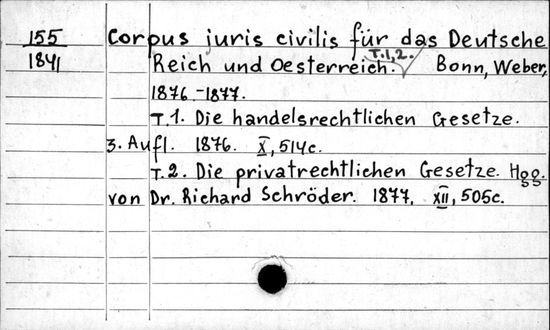 155 Corpus juris civilis für das Deutsche
1841 Reich und Oesterreich. T.1,2. Bonn, Weber,
1876-1877.
T.1. Die handelsrechtlichen Gesetze.
3. Aufl. 1876. X, 514c.
T.2. Die privatrechtlichen Gesetze. Hgg.
von Dr. Richard Schröder. 1877, XII, 505c.